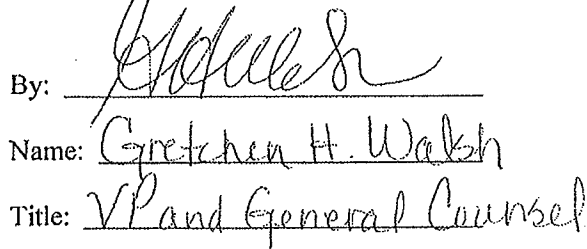 By:
Name: Gretchen H. Walsh
Title: VP and General Counsel